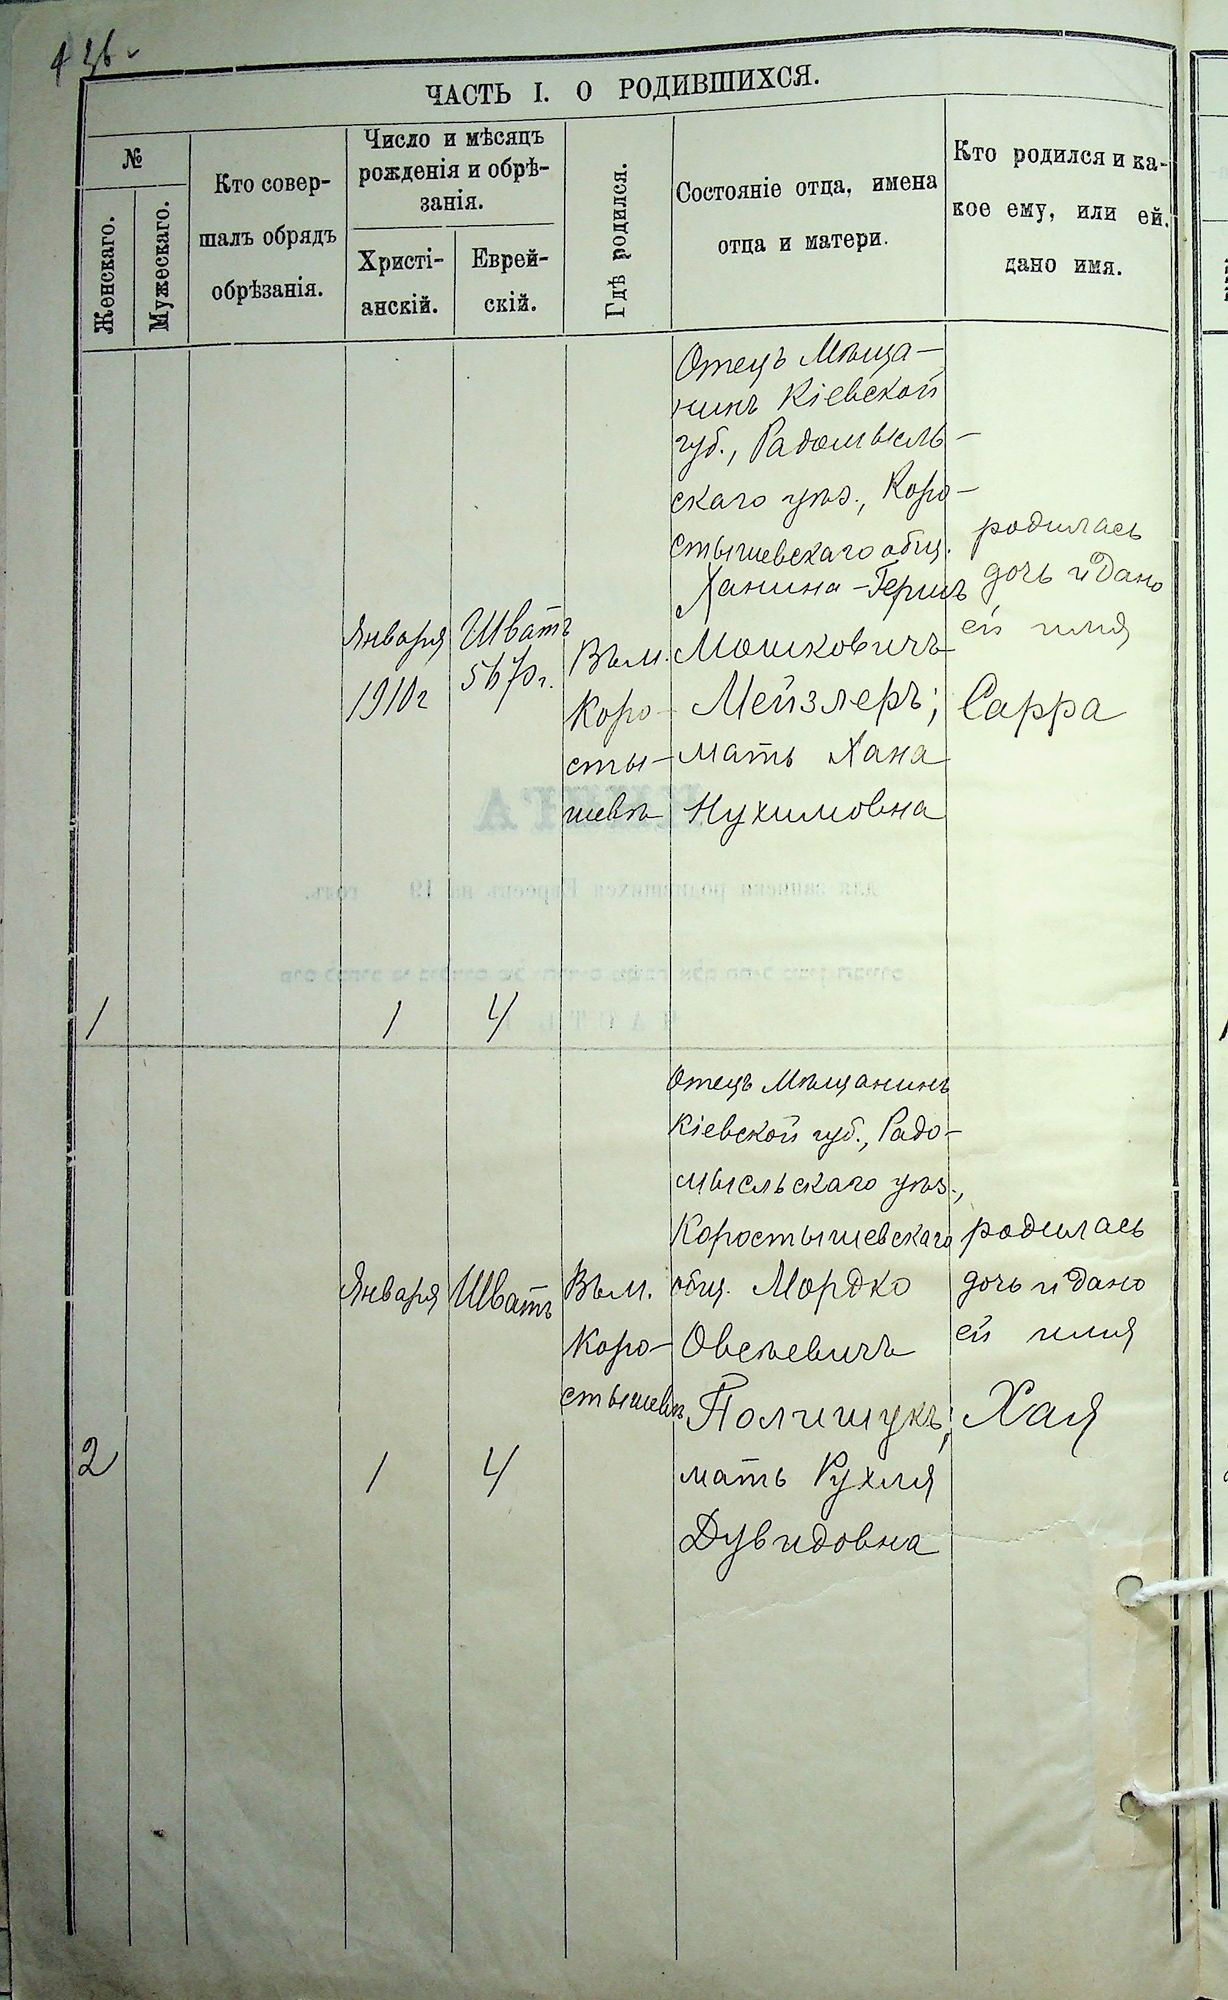 ЧАСТЬ I. О РОДИВШИХСЯ.
№
Женскаго.
Мужескаго.
Кто совер-
шалъ обрядъ
обрѣзанія.
Число и мѣсяцъ
рожденія и обрѣ-
занія.
Христі-
анскій.
Еврей-
скій.
Гдѣ родился.
Состояніе отца, имена
отца и матери.
Кто родился и ка-
кое ему, или ей,
дано имя.
1
Января
1910 г
1
Шватъ
5670 г.
4
Въ м.
Коро-
сты-
шевѣ
Отецъ Мѣща-
нинъ Кіевской
губ., Радомысль-
скаго уѣз., Коро-
стышевскаго общ.
Ханина-Гершъ
Мошковичъ
Мейзлеръ;
мать Хана
Нухимовна
родилась
дочь и дано
ей имя
Сарра
2
Января
1
Шватъ
4
Въ м.
Коро-
стышевѣ
Отецъ Мѣщанинъ
Кіевской губ., Радо-
мысльскаго уѣз.,
Коростышевскаго
общ. Мордко
Овсѣевичъ
Полищукъ;
мать Рухля
Дувидовна
родилась
дочь и дано
ей имя
Хая